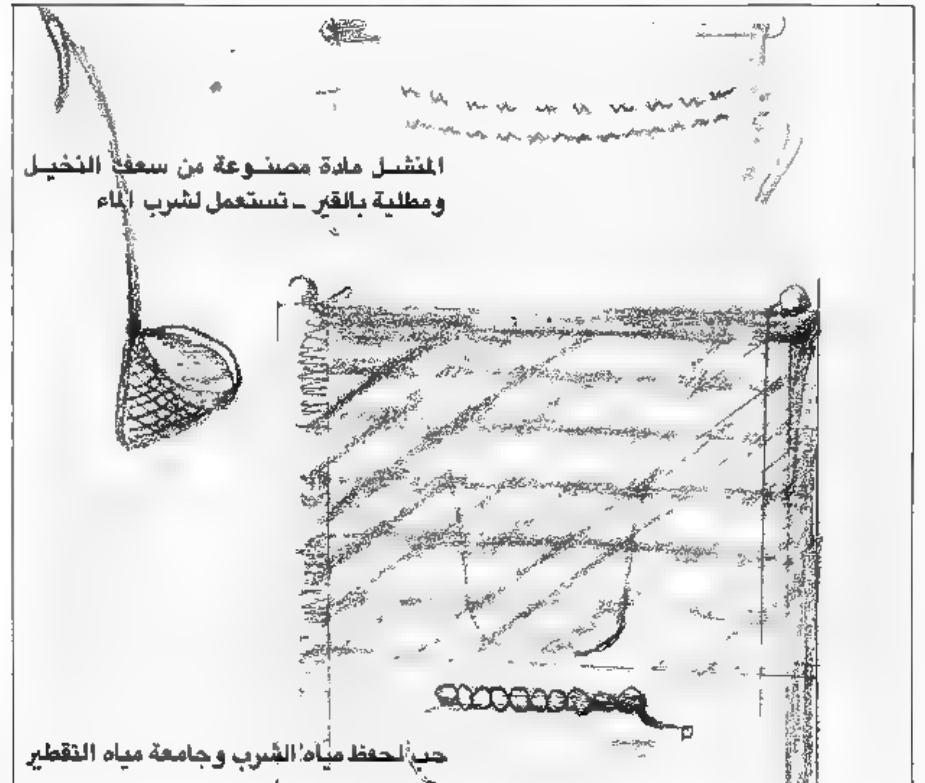 المنشل مادة مصنوعة من سعف النخيل
ومطلية بالقير ـ تستعمل لشرب الماء
حب لحفظ مياه الشرب وجامعة مياه التقطير